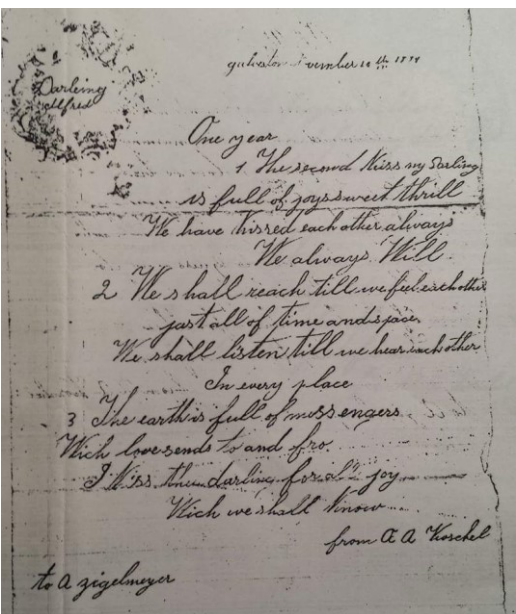 Darling
Alfred
10 th
One year
1 The second Kiss my Darling
is full of joys sweet thrill
We have kissed each other always
We always Will.
2 We shall reach till we feel each other
past all of time and space
We shall listen till we hear each other
In every place
3 The earth is full of messengers
Wich love sends to and fro.
I Kiss thee darling for all joy
Wich we shall know
from A A Koschel
to A zigelmeyer